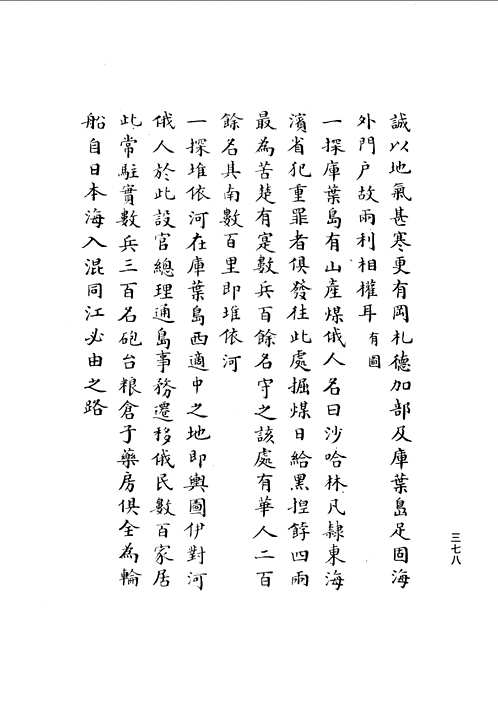 誠以地氣甚寒更有岡札德加部及庫葉島足固海
外門户故兩利相權耳有圖
一探庫葉島有山產煤俄人名曰沙哈林凡隸東海
濱省犯重罪者俱發往此處掘煤日給黑揑餑四兩
最為苦楚有寔數兵百餘名守之該處有華人二百
餘名其南數百里即堆依河
一探堆依河在庫葉島西適中之地即輿圖伊對河
俄人於此設官總理通島事務遷移俄民數百家居
此常駐實數兵三百名砲台粮倉子藥房俱全為輪
船自日本海入混同江必由之路
三七八